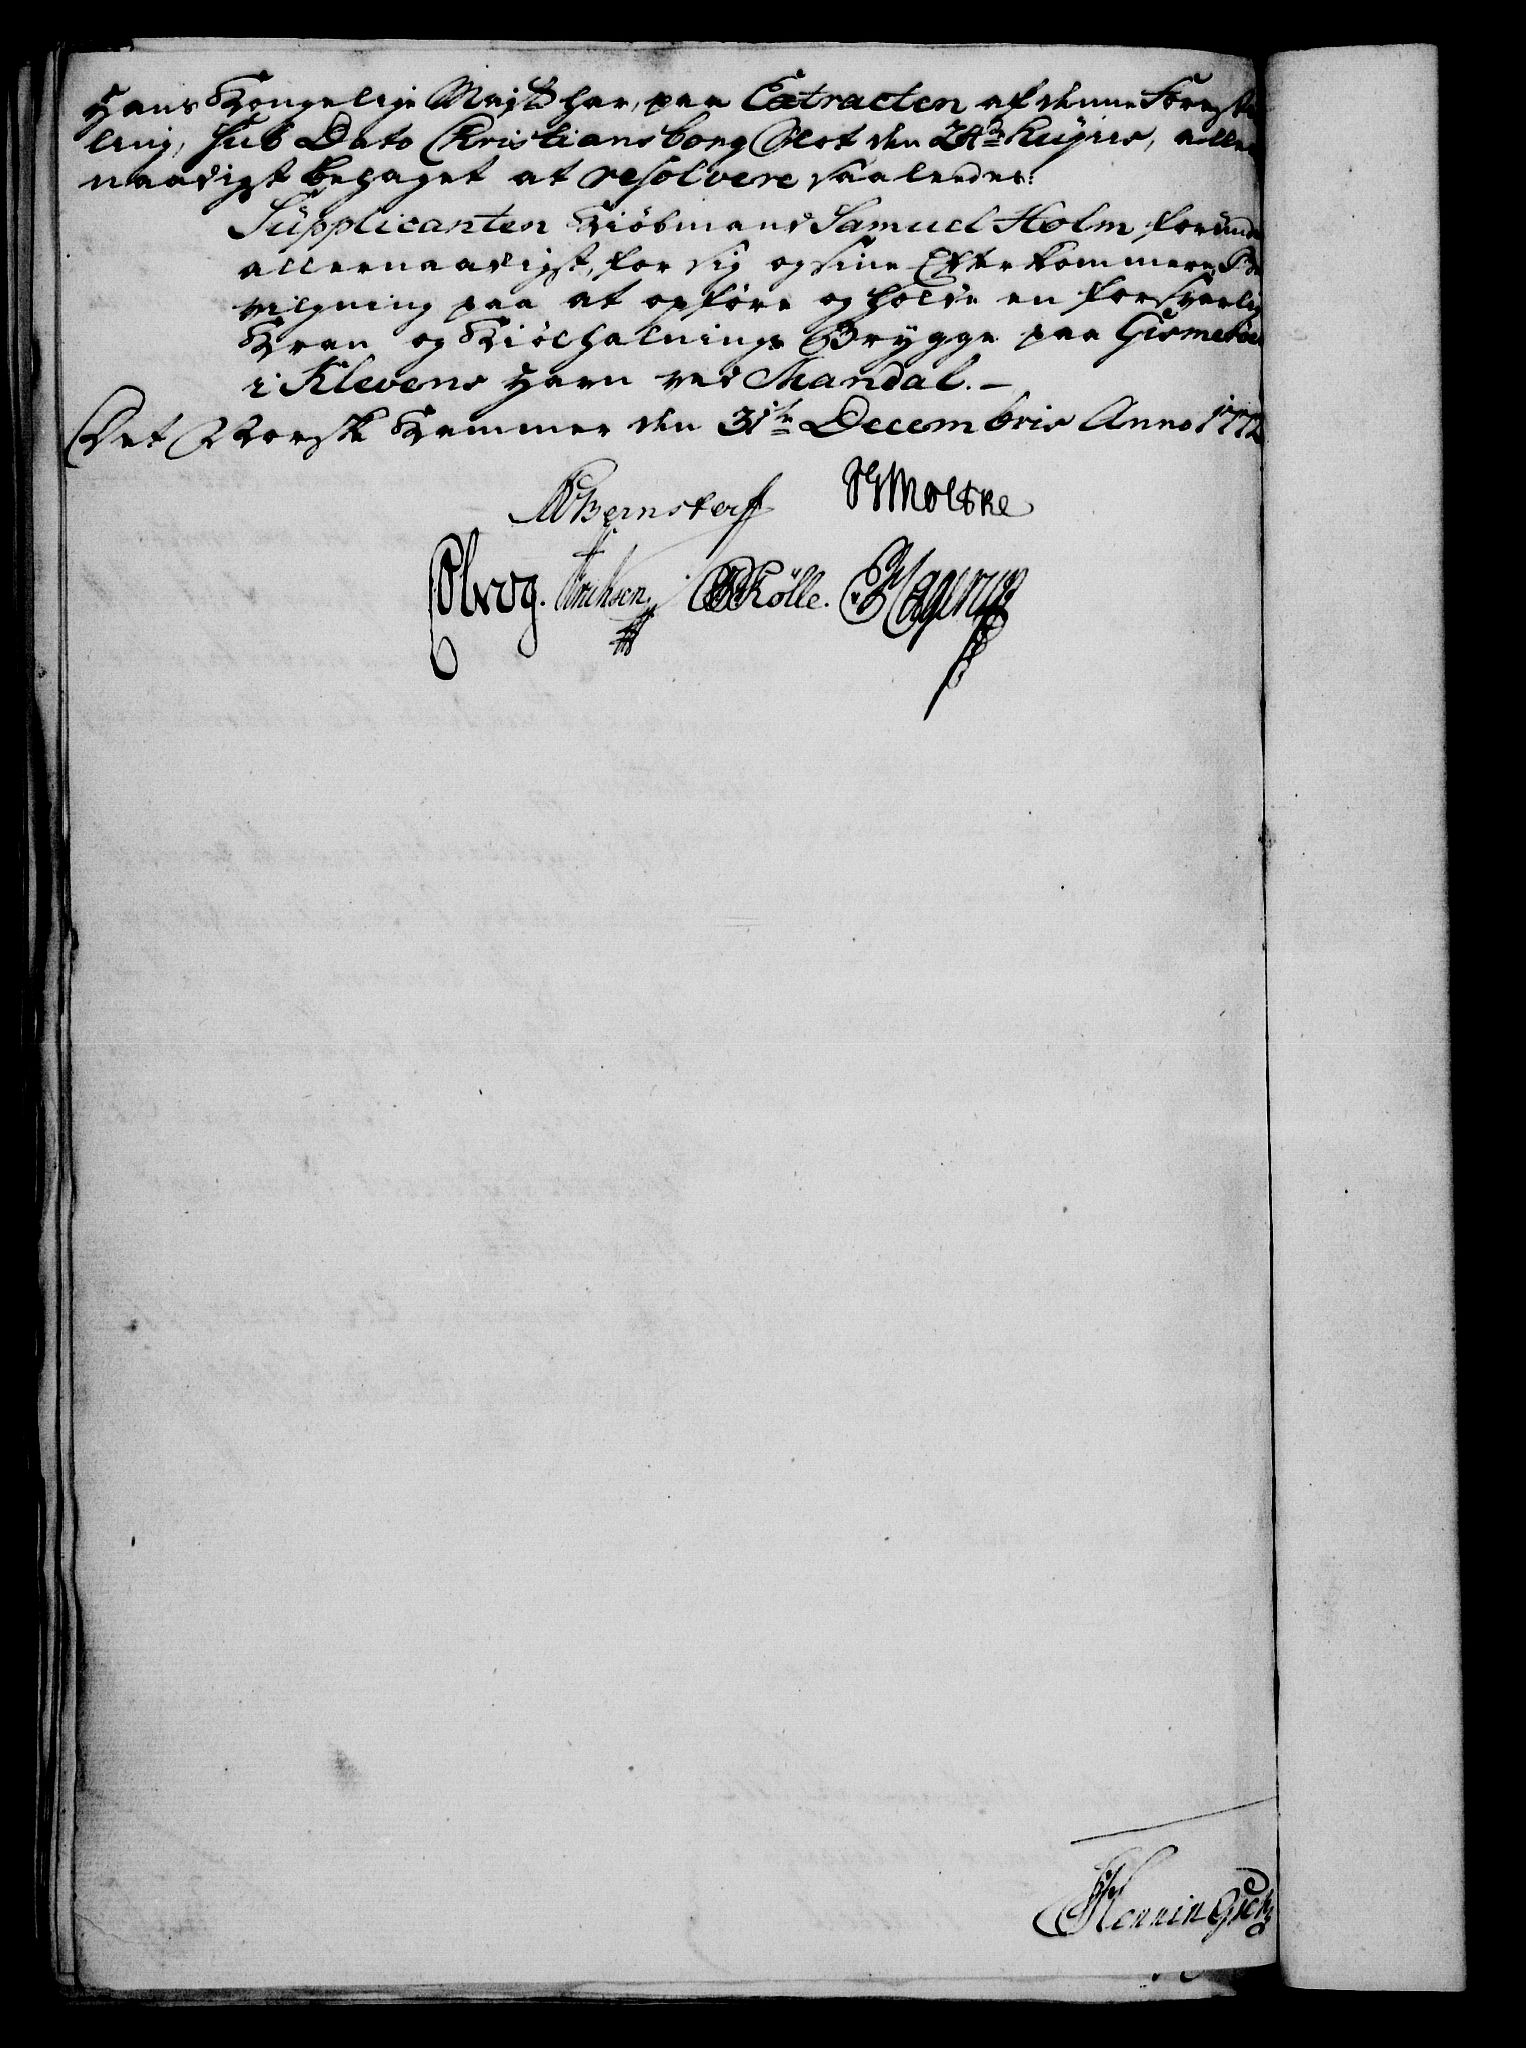 Hans Kongelige Majts har, paa Extracten af denne Forestil
ling, sub Dato Christiansborg Slot den 24de hujus, aller
naadigst behaget at resolvere saaledes:
Supplicanten Kiöbmand Samuel Holm forundes
allernaadigst, for sig og sine Efterkommere, Be
vilgning paa at opföre og holde en forsvarlig
Kran og Kiölhalnings Brygge paa
i Klevens Havn ved Mandal. –
Det Norske Kammer den 31te Decembris Anno 1772
Bernstorff Moltke
Erichsen. Rölle. Hagerup